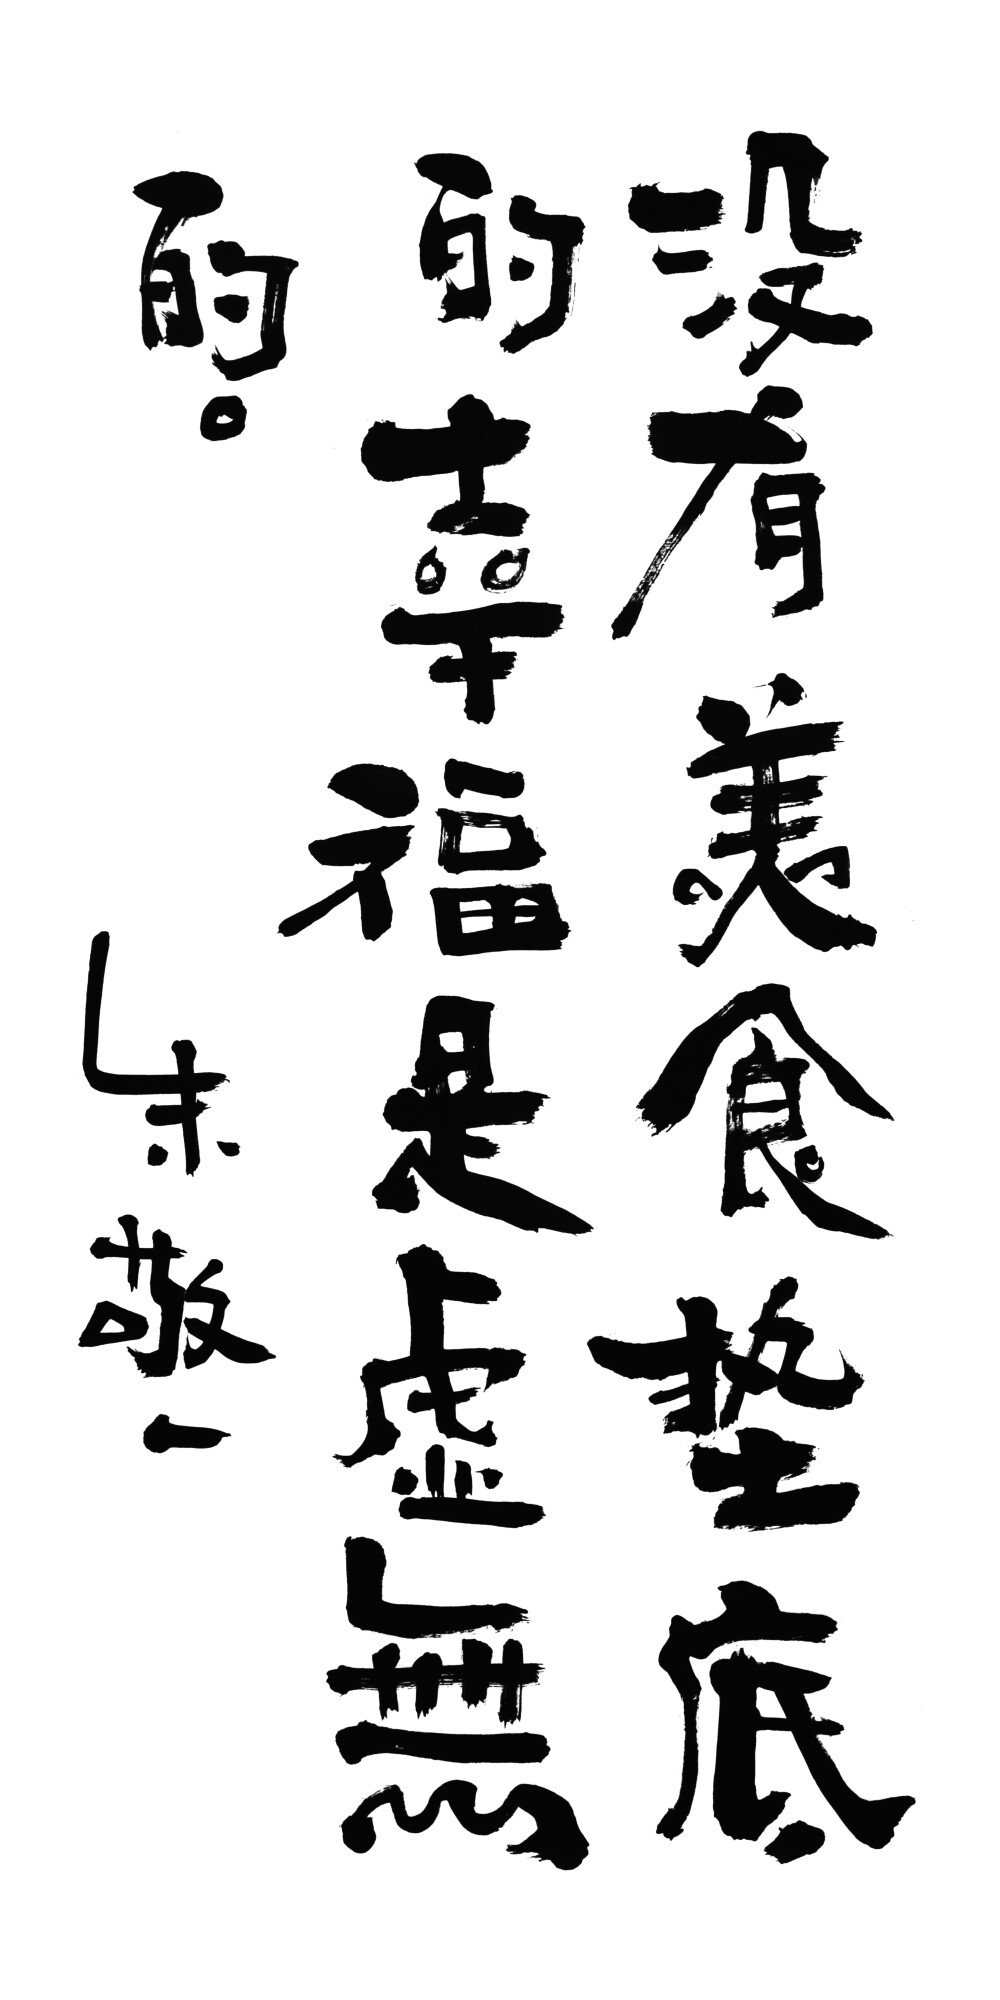 没有美食垫底
的幸福是虚無
的。
朱敬一